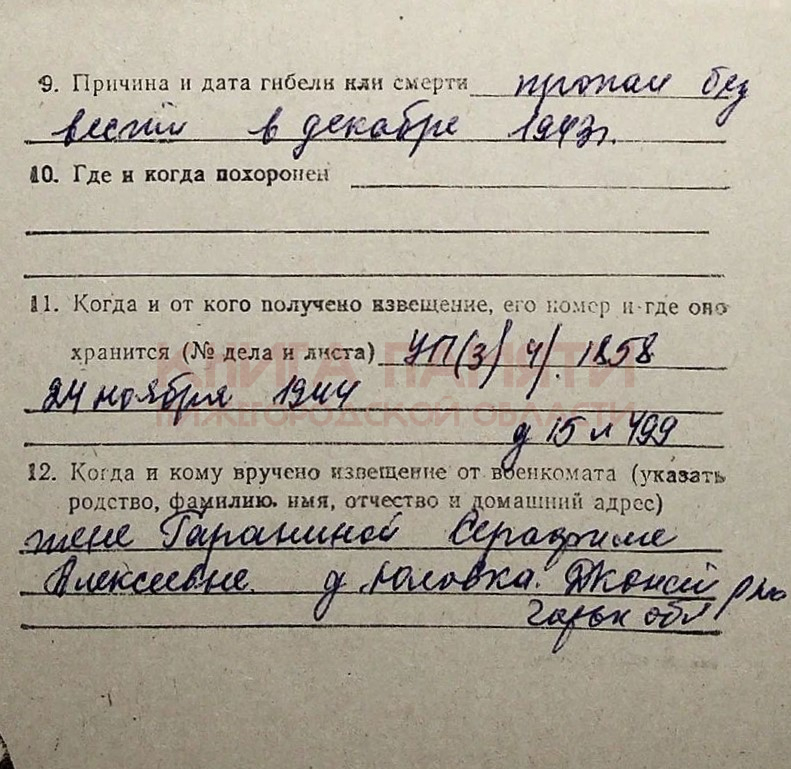 9. Причина и дата гибели или смерти пропал без
вести в декабре 1943г.
10. Где и когда похоронен
11. Когда и от кого получено извещение, его номер и где оно
хранится (№ дела и листа) УП(3)/4/. 1858
КНИГА ПАМЯТИ
24 ноября 1944
НИЖЕГОРОДСКОЙ ОБЛАСТИ
д 15 л 499
12. Когда и кому вручено извещение от военкомата (указать
родство, фамилию, имя, отчество и домашний адрес)
жене Гараниной Серафиме
Алексеевне. д Юловка. р-на
горьк обл